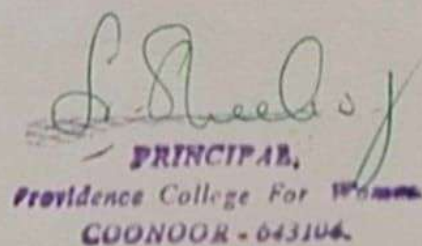 PRINCIPAL,
Providence College For Women
COONOOR - 643104.